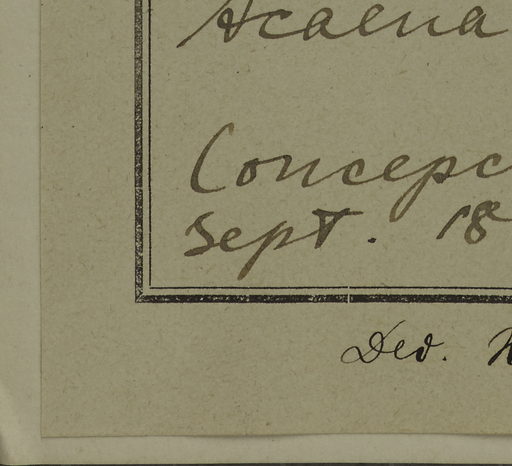 Acaena
Concepc
Sept. 18
Ded.